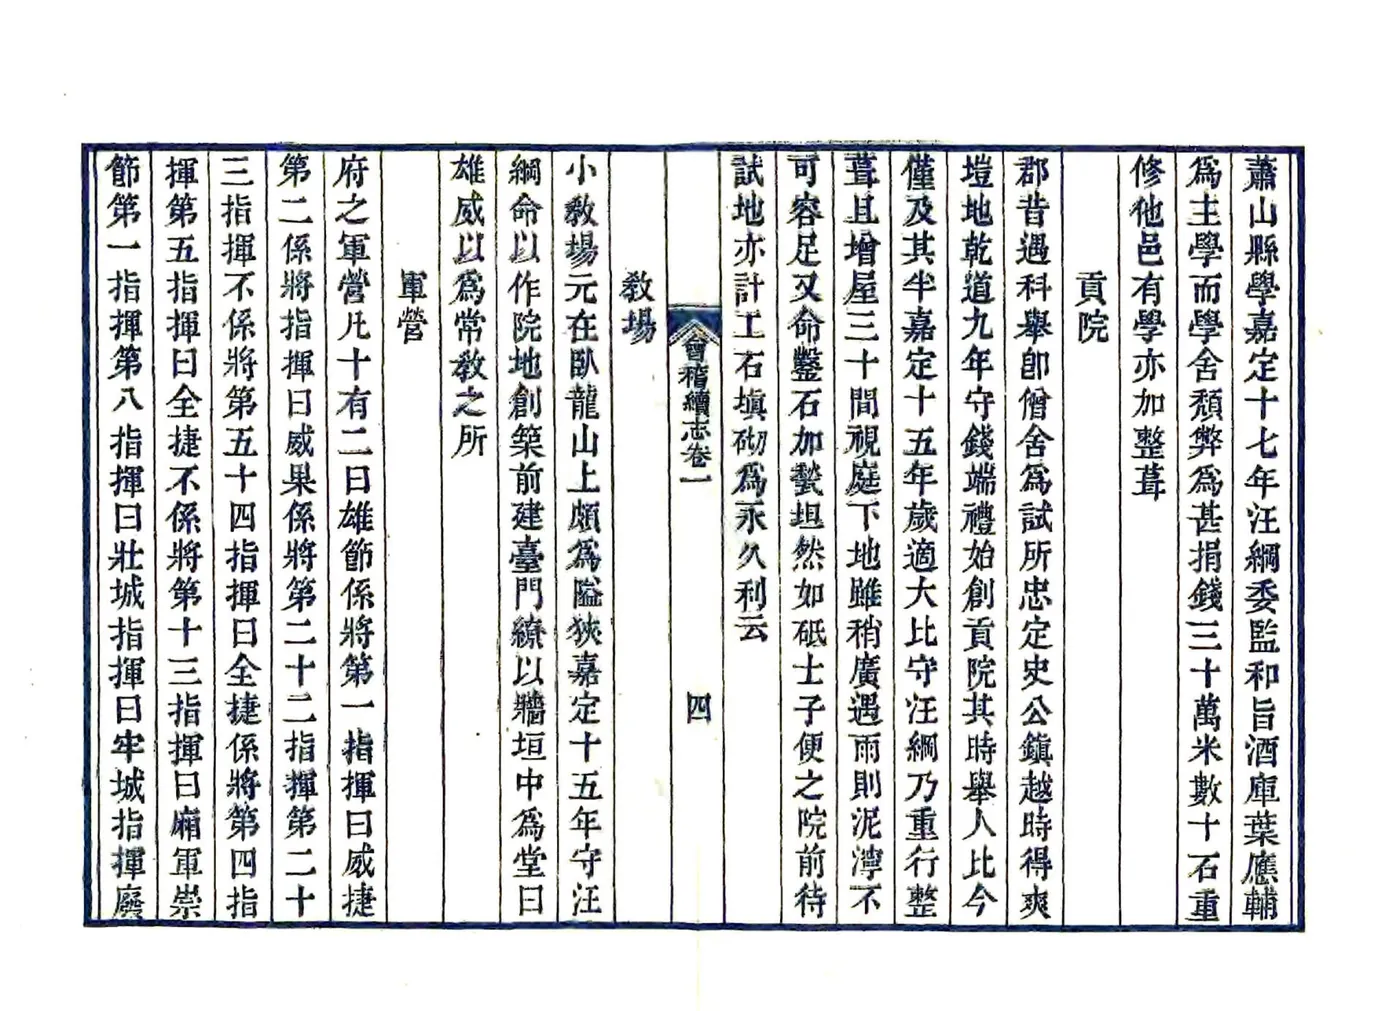 蕭山縣學嘉定十七年汪綱委監和旨酒庫葉應輔
爲主學而學舍頹弊爲甚捐錢三十萬米數十石重
修他邑有學亦加整葺
貢院
郡昔遇科舉卽僧舍爲試所忠定史公鎮越時得爽
塏地乾道九年守錢端禮始創貢院其時舉人比今
僅及其半嘉定十五年歲適大比守汪綱乃重行整
葺且增屋三十間視庭下地雖稍廣遇雨則泥濘不
可容足又命鑿石加甃坦然如砥士子便之院前待
試地亦計工石塡砌爲永久利云
會稽續志卷一
四
敎場
小敎場元在臥龍山上頗爲隘狹嘉定十五年守汪
綱命以作院地創築前建臺門繚以牆垣中爲堂曰
雄威以爲常敎之所
軍營
府之軍營凡十有二曰雄節係將第一指揮曰威捷
第二係將指揮曰威果係將第二十二指揮第二十
三指揮不係將第五十四指揮曰全捷係將第四指
揮第五指揮曰全捷不係將第十三指揮曰廂軍崇
節第一指揮第八指揮曰壯城指揮曰牢城指揮廢